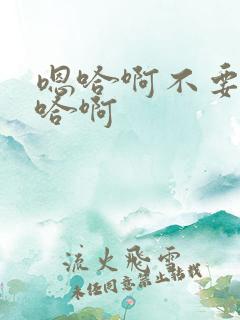 嗯哈啊不要
哈啊
流火飛雲
未经同意禁止转载